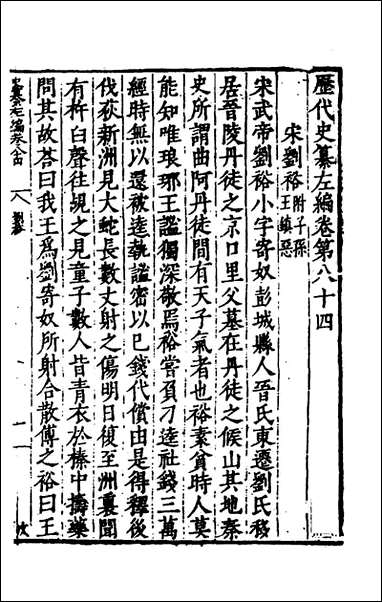 歷代史纂左編卷第八十四
宋劉裕 附子孫 王鎮惡
宋武帝劉裕小字寄奴彭城縣人晉氏東遷劉氏移
居晉陵丹徒之京口里父墓在丹徒之候山其地秦
史所謂曲阿丹徒間有天子氣者也裕素貧時人莫
能知唯琅琊王謐獨深敬焉裕嘗負刁逵社錢三萬
經時無以還被逵執謐密以己錢代償由是得釋後
伐荻新洲見大蛇長數丈射之傷明日復至洲裏聞
有杵臼聲往覘之見童子數人皆青衣於榛中擣藥
問其故荅曰我王為劉寄奴所射合散傅之裕曰王